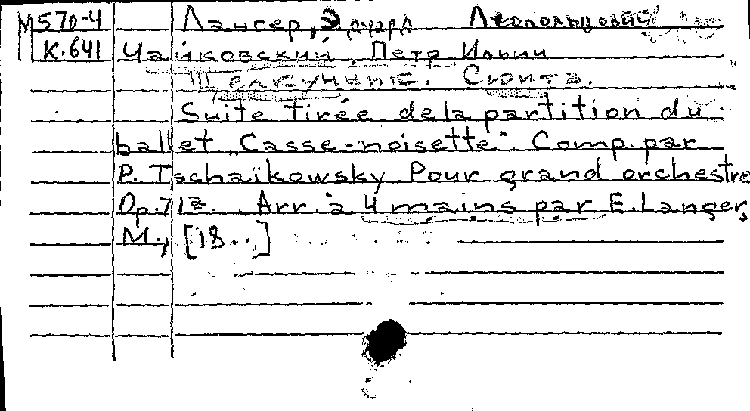 М570-4 Лансер, Эдуард Леопольдович
К.641 Чайковский, Петр Ильич
Щелкунчик. Сюита.
Suite tirée de la partition du
ballet „Casse-noisette". Comp. par
P. Tschaïkowsky Pour grand orchestre
Op. 71 Arr. à 4 mains par E. Langer,
М., [18..]